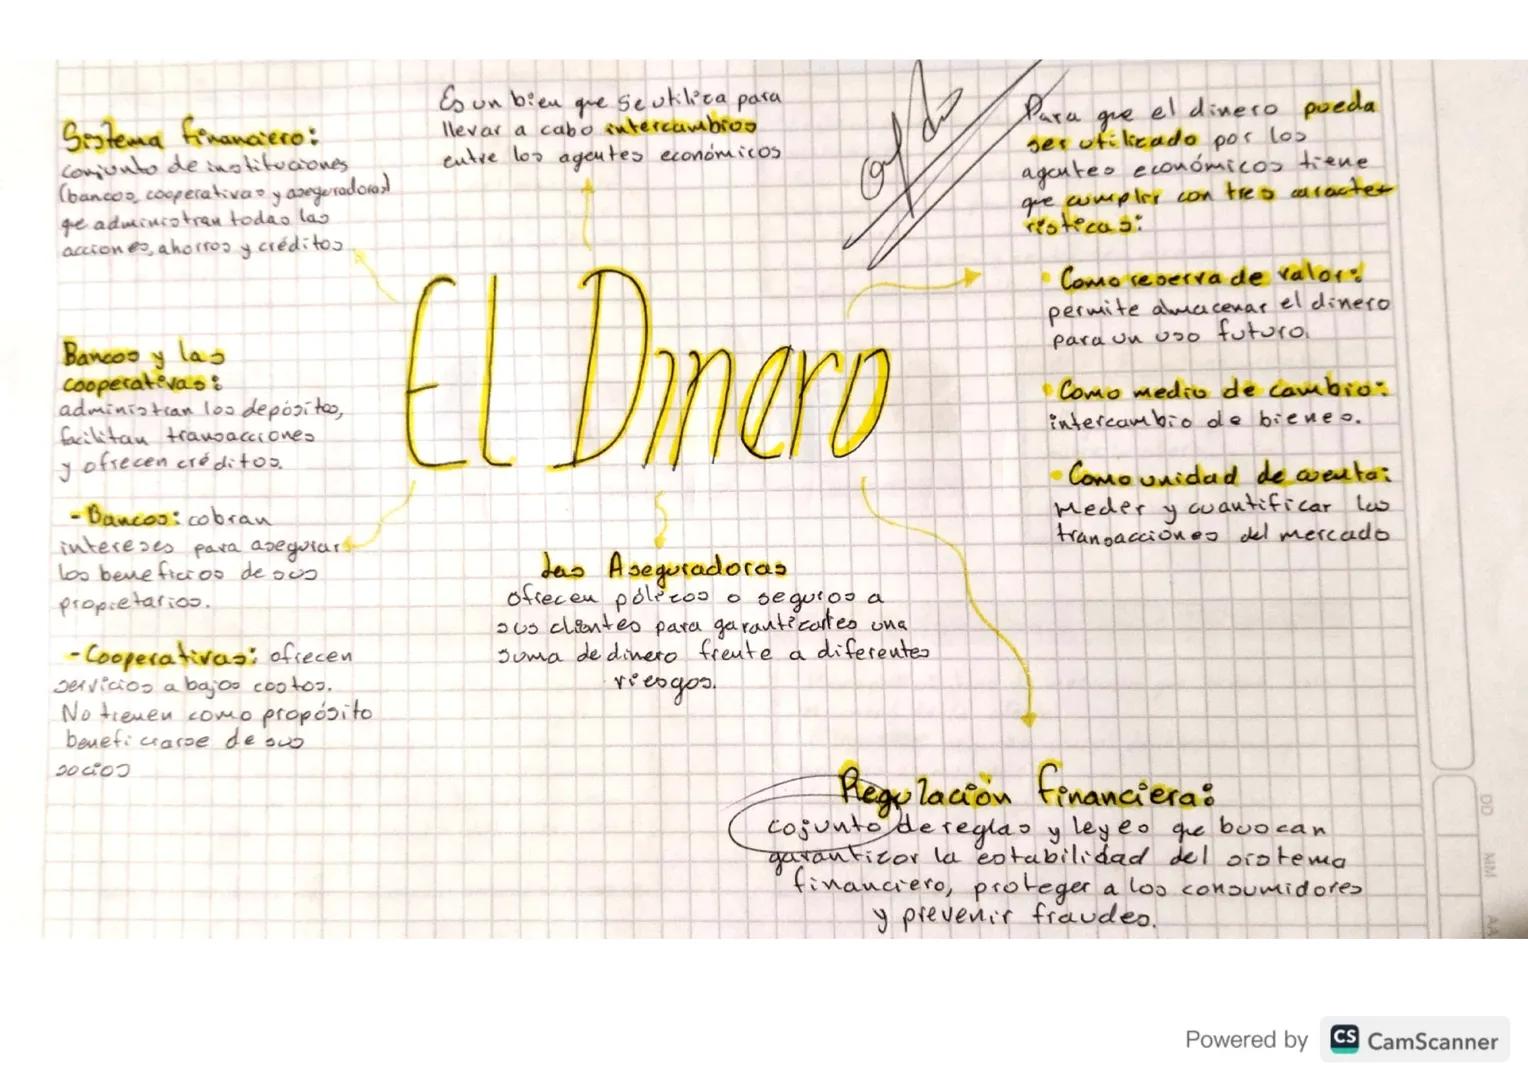 Sistema financiero:
conjunto de instituciones
(bancos, cooperativas y aseguradoras)
que administran todas las
acciones, ahorros y créditos
Es un bien que se utiliza para
llevar a cabo intercambios
entre los agentes económicos
Para que el dinero pueda
ser utilizado por los
agentes económicos tiene
que cumplir con tres caracter
rísticas:
• Como reserva de valor:
permite almacenar el dinero
para un uso futuro.
• Como medio de cambio:
intercambio de bienes.
• Como unidad de cuenta:
Meder y cuantificar las
transacciones del mercado
El Dinero
Bancos y las
cooperativas:
administran los depósitos,
facilitan transacciones
y ofrecen créditos.
- Bancos: cobran
intereses para asegurar
los beneficios de sus
propietarios.
- Cooperativas: ofrecen
servicios a bajos costos.
No tienen como propósito
beneficiarse de sus
socios
Las Aseguradoras
ofrecen pólizas o seguros a
sus clientes para garantizarles una
suma de dinero frente a diferentes
riesgos.
Regulación financiera:
cojunto de reglas y leyes que buscan
garantizar la estabilidad del sistema
financiero, proteger a los consumidores
y prevenir fraudes.
DD
MM
AA
Powered by CS CamScanner